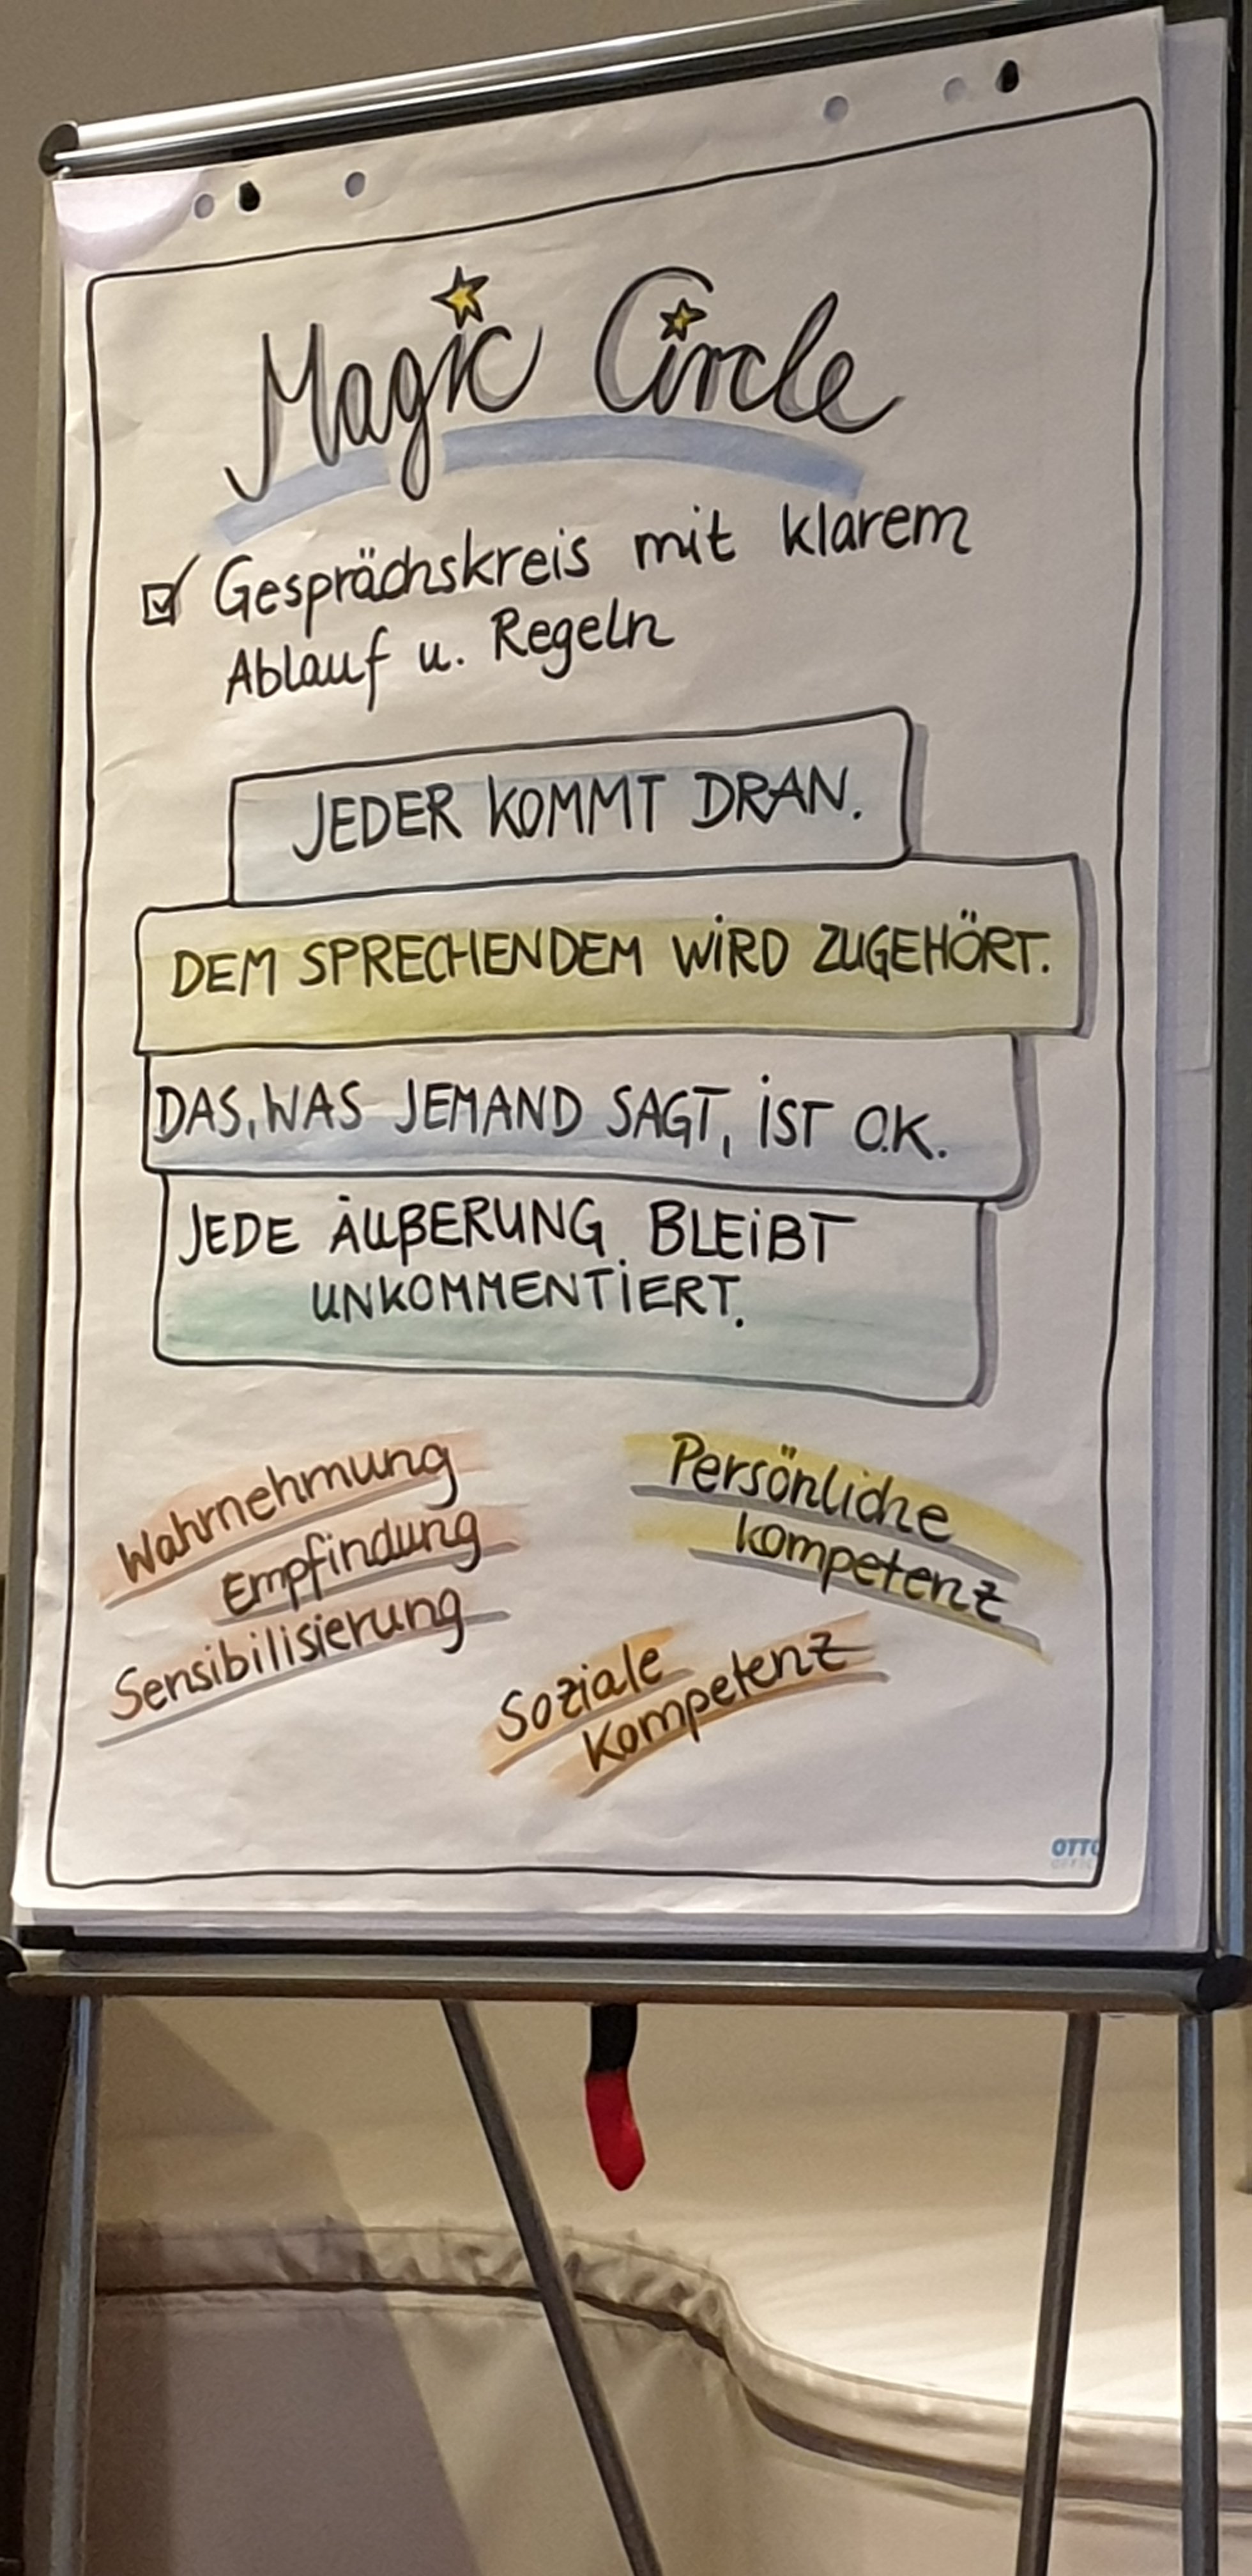 Magic Circle
Gesprächskreis mit klarem
Ablauf u. Regeln
JEDER KOMMT DRAN.
DEM SPRECHENDEM WIRD ZUGEHÖRT.
DAS, WAS JEMAND SAGT, IST O.K.
JEDE ÄUßERUNG BLEIBT
UNKOMMENTIERT.
Wahrnehmung
Empfindung
Sensibilisierung
Persönliche
Kompetenz
Soziale
Kompetenz
OTTO